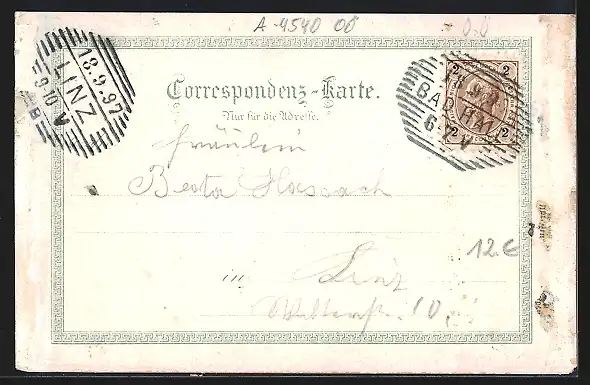 A-4540 OÖ
O.Ö
LINZ
18.9.97
9-10 V
B
2 2
2 2
BAD HALL
6-7 V
Correspondenz-Karte.
Nur für die Adresse.
Fräulein
Berta Hassach
12 €
in Linz
10